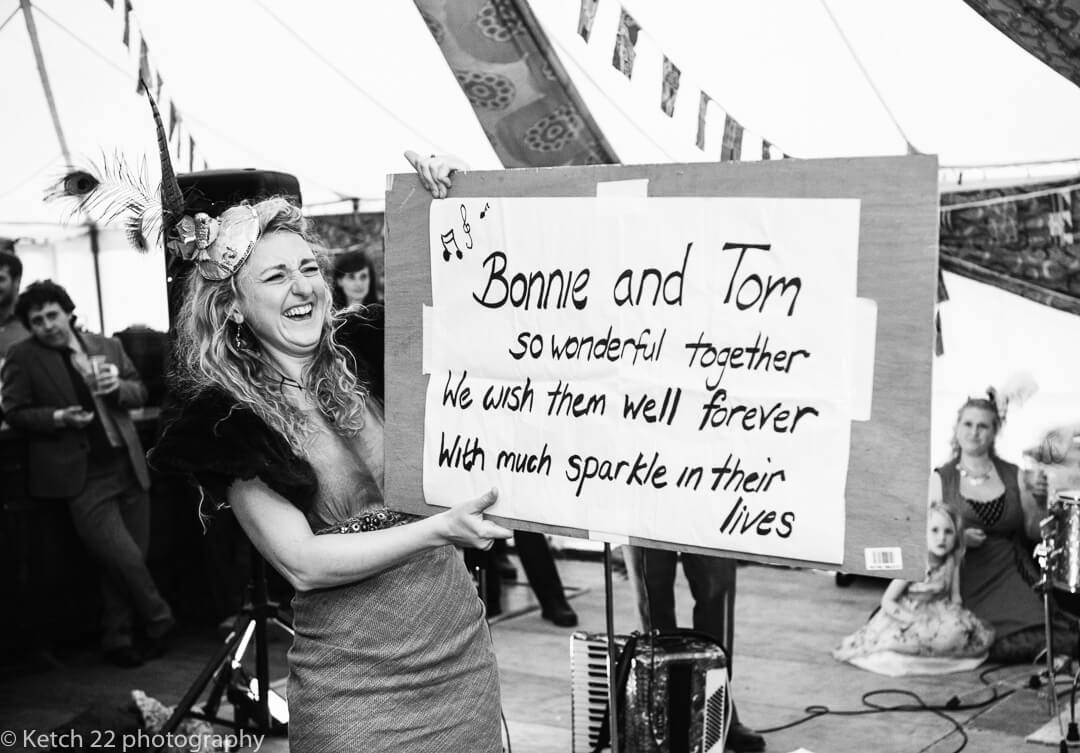 Bonnie and Tom
so wonderful together
We wish them well forever
With much sparkle in their
lives
© Ketch 22 photography